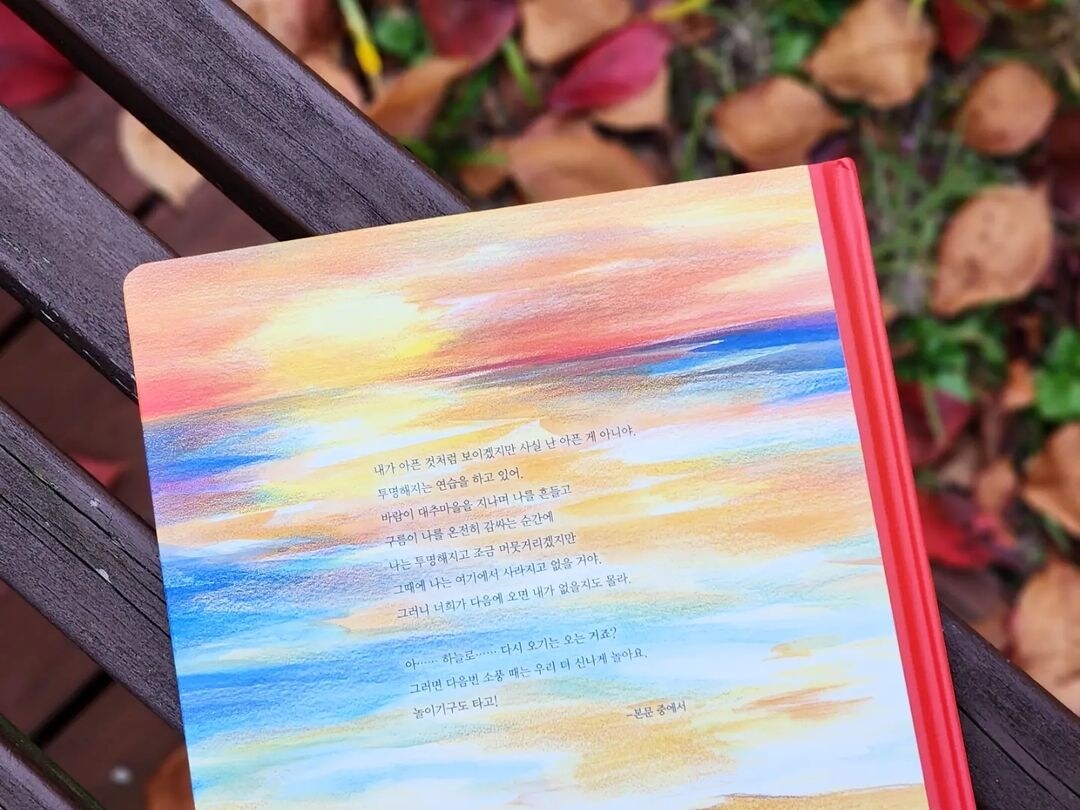 내가 아픈 것처럼 보이겠지만 사실 난 아픈 게 아니야.
투명해지는 연습을 하고 있어.
바람이 대추마을을 지나며 나를 흔들고
구름이 나를 온전히 감싸는 순간에
나는 투명해지고 조금 머뭇거리겠지만
그때에 나는 여기에서 사라지고 없을 거야.
그러니 너희가 다음에 오면 내가 없을지도 몰라.
아…… 하늘로…… 다시 오기는 오는 거죠?
그러면 다음번 소풍 때는 우리 더 신나게 놀아요.
놀이기구도 타고!
-본문 중에서